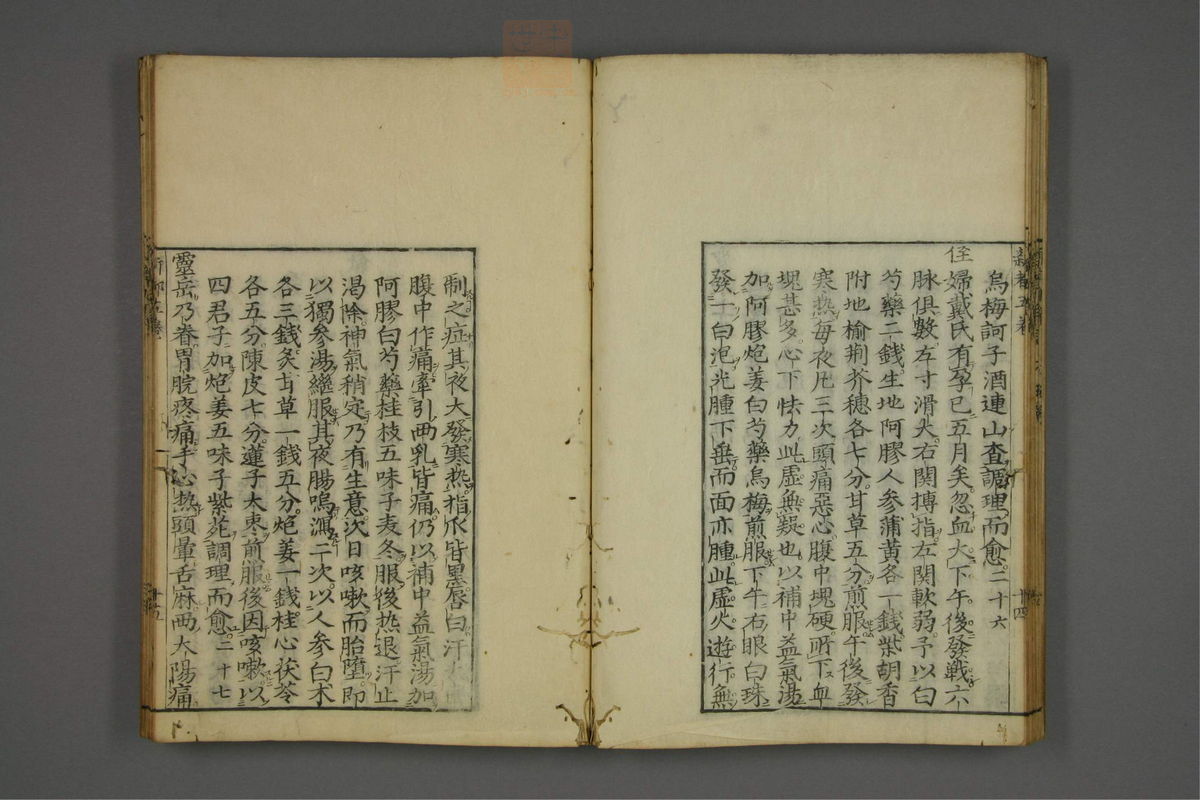 烏梅訶子酒連山査調理而愈二十六
侄婦戴氏有孕已五月矣忽血大下午後發戰六
脉俱數左寸滑大右関搏指左関軟弱予以白
芍藥二錢生地阿膠人参蒲黄各一錢柴胡香
附地榆荆芥穗各七分甘草五分煎服午後發
寒热每夜凡三次頭痛惡心腹中塊硬所下血
塊甚多心下怯力此虚無疑也以補中益氣湯
加阿膠炮姜白芍藥烏梅煎服下午右眼白珠
發一白泡光腫下垂而面亦腫此虚火遊行無
制之症其夜大發寒热指爪皆黑唇白汗
腹中作痛牽引两乳皆痛仍以補中益氣湯加
阿膠白芍藥桂枝五味子麦冬服後热退汗止
渴除神氣稍定乃有生意次日咳嗽而胎墮即
以獨參湯繼服其夜腸鳴瀉二次以人参白术
各三錢炙甘草一錢五分炮姜一錢桂心茯苓
各五分陳皮七分蓮子大枣煎服後因咳嗽以
四君子加炮姜五味子紫苑調理而愈二十七
靈岳乃眷胃脘疼痛手心热頭暈舌麻两太陽痛